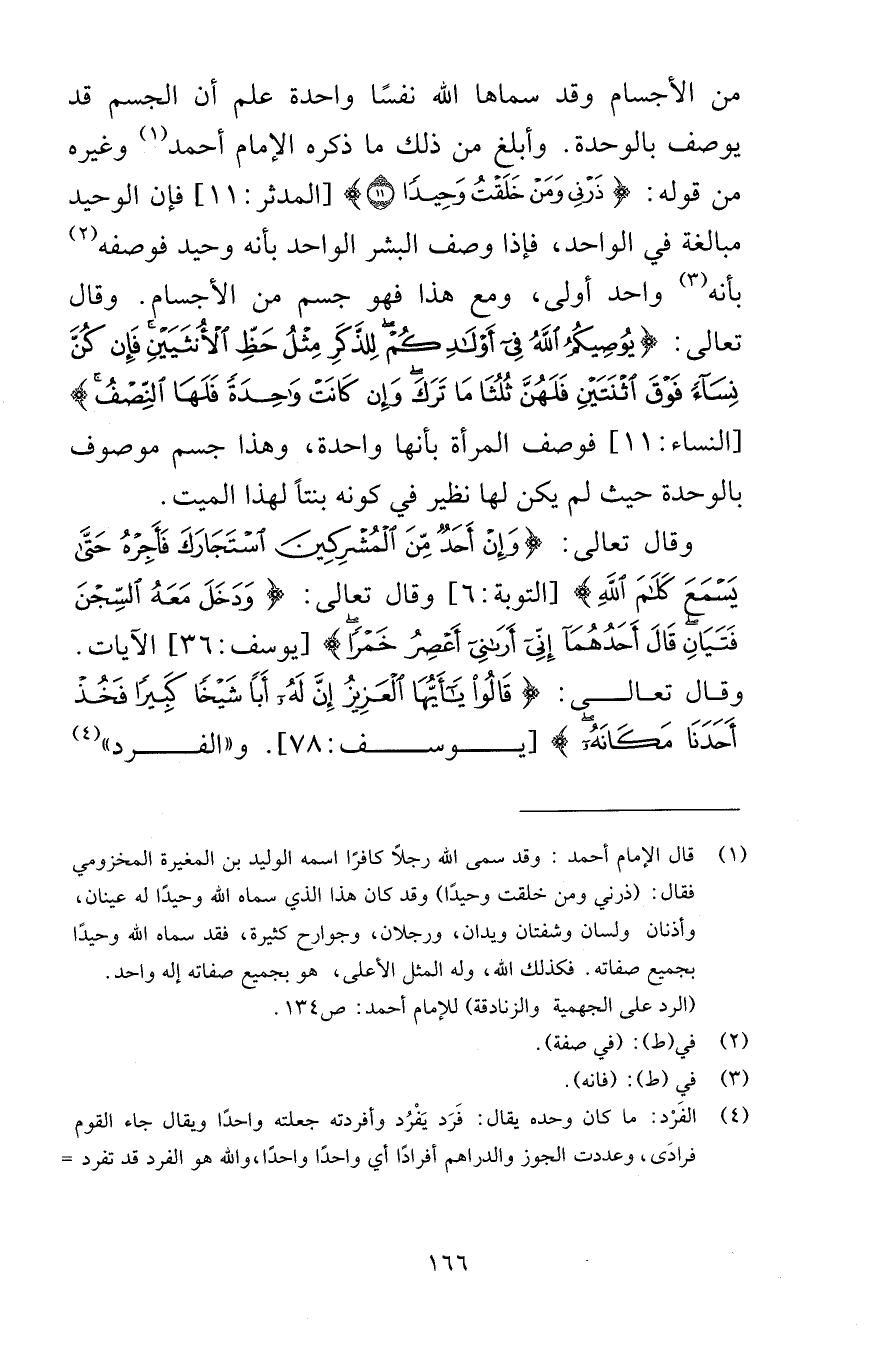 من الأجسام وقد سماها الله نفسًا واحدة علم أن الجسم قد
يوصف بالوحدة. وأبلغ من ذلك ما ذكره الإمام أحمد(١) وغيره
من قوله: ﴿ ذَرْنِي وَمَنْ خَلَقْتُ وَحِيدًا ١١ ﴾ [المدثر:١١] فإن الوحيد
مبالغة في الواحد، فإذا وصف البشر الواحد بأنه وحيد فوصفه(٢)
بأنه(٣) واحد أولى، ومع هذا فهو جسم من الأجسام. وقال
تعالى: ﴿ يُوصِيكُمُ ٱللَّهُ فِىٓ أَوْلَـٰدِكُمْ ۖ لِلذَّكَرِ مِثْلُ حَظِّ ٱلْأُنثَيَيْنِ ۚ فَإِن كُنَّ
نِسَآءً فَوْقَ ٱثْنَتَيْنِ فَلَهُنَّ ثُلُثَا مَا تَرَكَ ۖ وَإِن كَانَتْ وَٰحِدَةً فَلَهَا ٱلنِّصْفُ ۚ ﴾
[النساء:١١] فوصف المرأة بأنها واحدة، وهذا جسم موصوف
بالوحدة حيث لم يكن لها نظير في كونه بنتاً لهذا الميت.
وقال تعالى: ﴿ وَإِنْ أَحَدٌ مِّنَ ٱلْمُشْرِكِينَ ٱسْتَجَارَكَ فَأَجِرْهُ حَتَّىٰ
يَسْمَعَ كَلَـٰمَ ٱللَّهِ ﴾ [التوبة:٦] وقال تعالى: ﴿ وَدَخَلَ مَعَهُ ٱلسِّجْنَ
فَتَيَانِ ۖ قَالَ أَحَدُهُمَآ إِنِّىٓ أَرَىٰنِىٓ أَعْصِرُ خَمْرًا ۖ ﴾ [يوسف:٣٦] الآيات.
وقال تعالى: ﴿ قَالُوا۟ يَـٰٓأَيُّهَا ٱلْعَزِيزُ إِنَّ لَهُۥٓ أَبًا شَيْخًا كَبِيرًا فَخُذْ
أَحَدَنَا مَكَانَهُۥٓ ۖ ﴾ [يوسف:٧٨]. و«الفرد»(٤)
(١) قال الإمام أحمد : وقد سمى الله رجلاً كافرًا اسمه الوليد بن المغيرة المخزومي
فقال: (ذرني ومن خلقت وحيدًا) وقد كان هذا الذي سماه الله وحيدًا له عينان،
وأذنان ولسان وشفتان ويدان، ورجلان، وجوارح كثيرة، فقد سماه الله وحيدًا
بجميع صفاته. فكذلك الله، وله المثل الأعلى، هو بجميع صفاته إله واحد.
(الرد على الجهمية والزنادقة) للإمام أحمد: ص١٣٤.
(٢) في(ط): (في صفة).
(٣) في (ط): (فانه).
(٤) الفَرْد: ما كان وحده يقال: فَرَد يَفْرُد وأفردته جعلته واحدًا ويقال جاء القوم
فرادَى، وعددت الجوز والدراهم أفرادًا أي واحدًا واحدًا،والله هو الفرد قد تفرد =
١٦٦